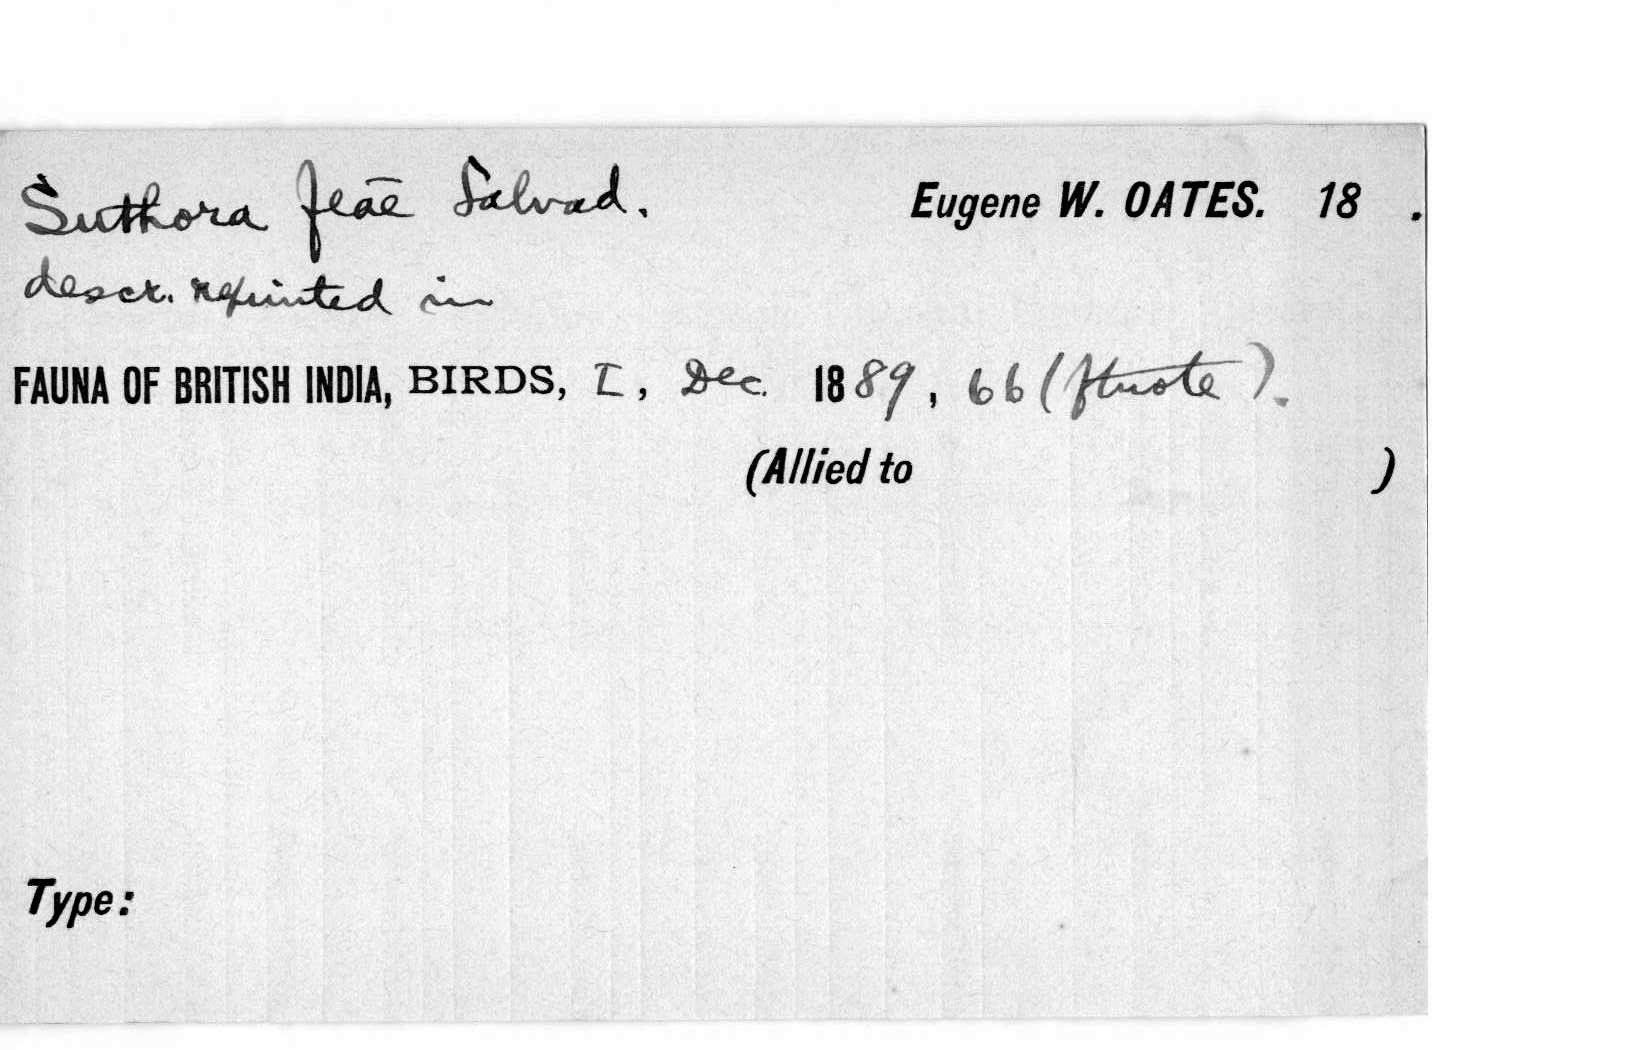 Suthora feae Salvad. Eugene W. OATES. 18 .
descr. reprinted in
FAUNA OF BRITISH INDIA, BIRDS, I, Dec. 1889, 66 (ftnote).
(Allied to )
Type: